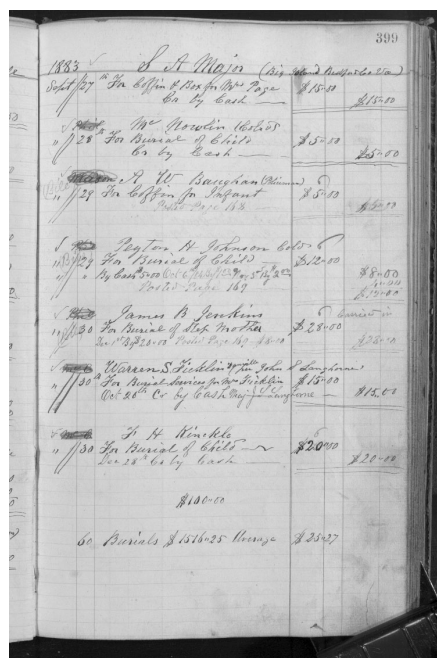 399
1883 S A Major (Big Island Bedford Co Va)
Sept 27th For Coffin & Box for Mrs Page $15.00
Cr by Cash $15.00
Mc Nowlin (Cold)
" 28th For Burial of Child $5.00
Cr by Cash $5.00
A W Baughan
" 29 For Coffin for Infant $5.00
Posted Page 168
Peyton H Johnson Cold
" 29 For Burial of Child $12.00
" By Cash $8.00
Posted Page 169 $12.00
James B Jenkins
" 30 For Burial of Step Mother $28.00
Posted Page 169 $28.00
Warren S. Ficklin John S Langhorne
" 30th For Burial Services for Mrs Ficklin $15.00
Oct 20th Cr by Cash Langhorne $15.00
F H Kinckle
" 30 For Burial of Child $20.00
Dec 28th Cr by Cash $20.00
$100.00
60 Burials $1516.25 Average $25.27